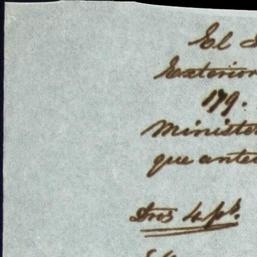 El
Exterior
179.
Minister
que ante
Dros 4 ps.